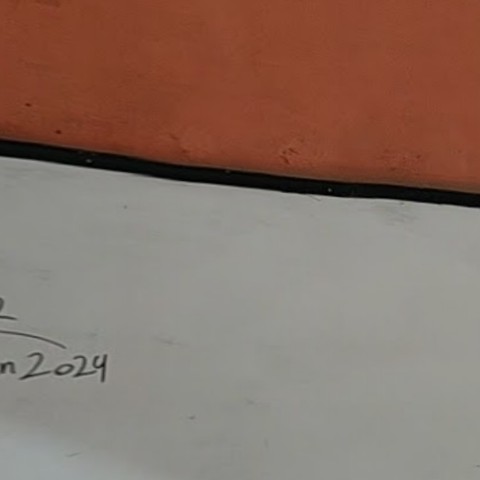 2
n 2024